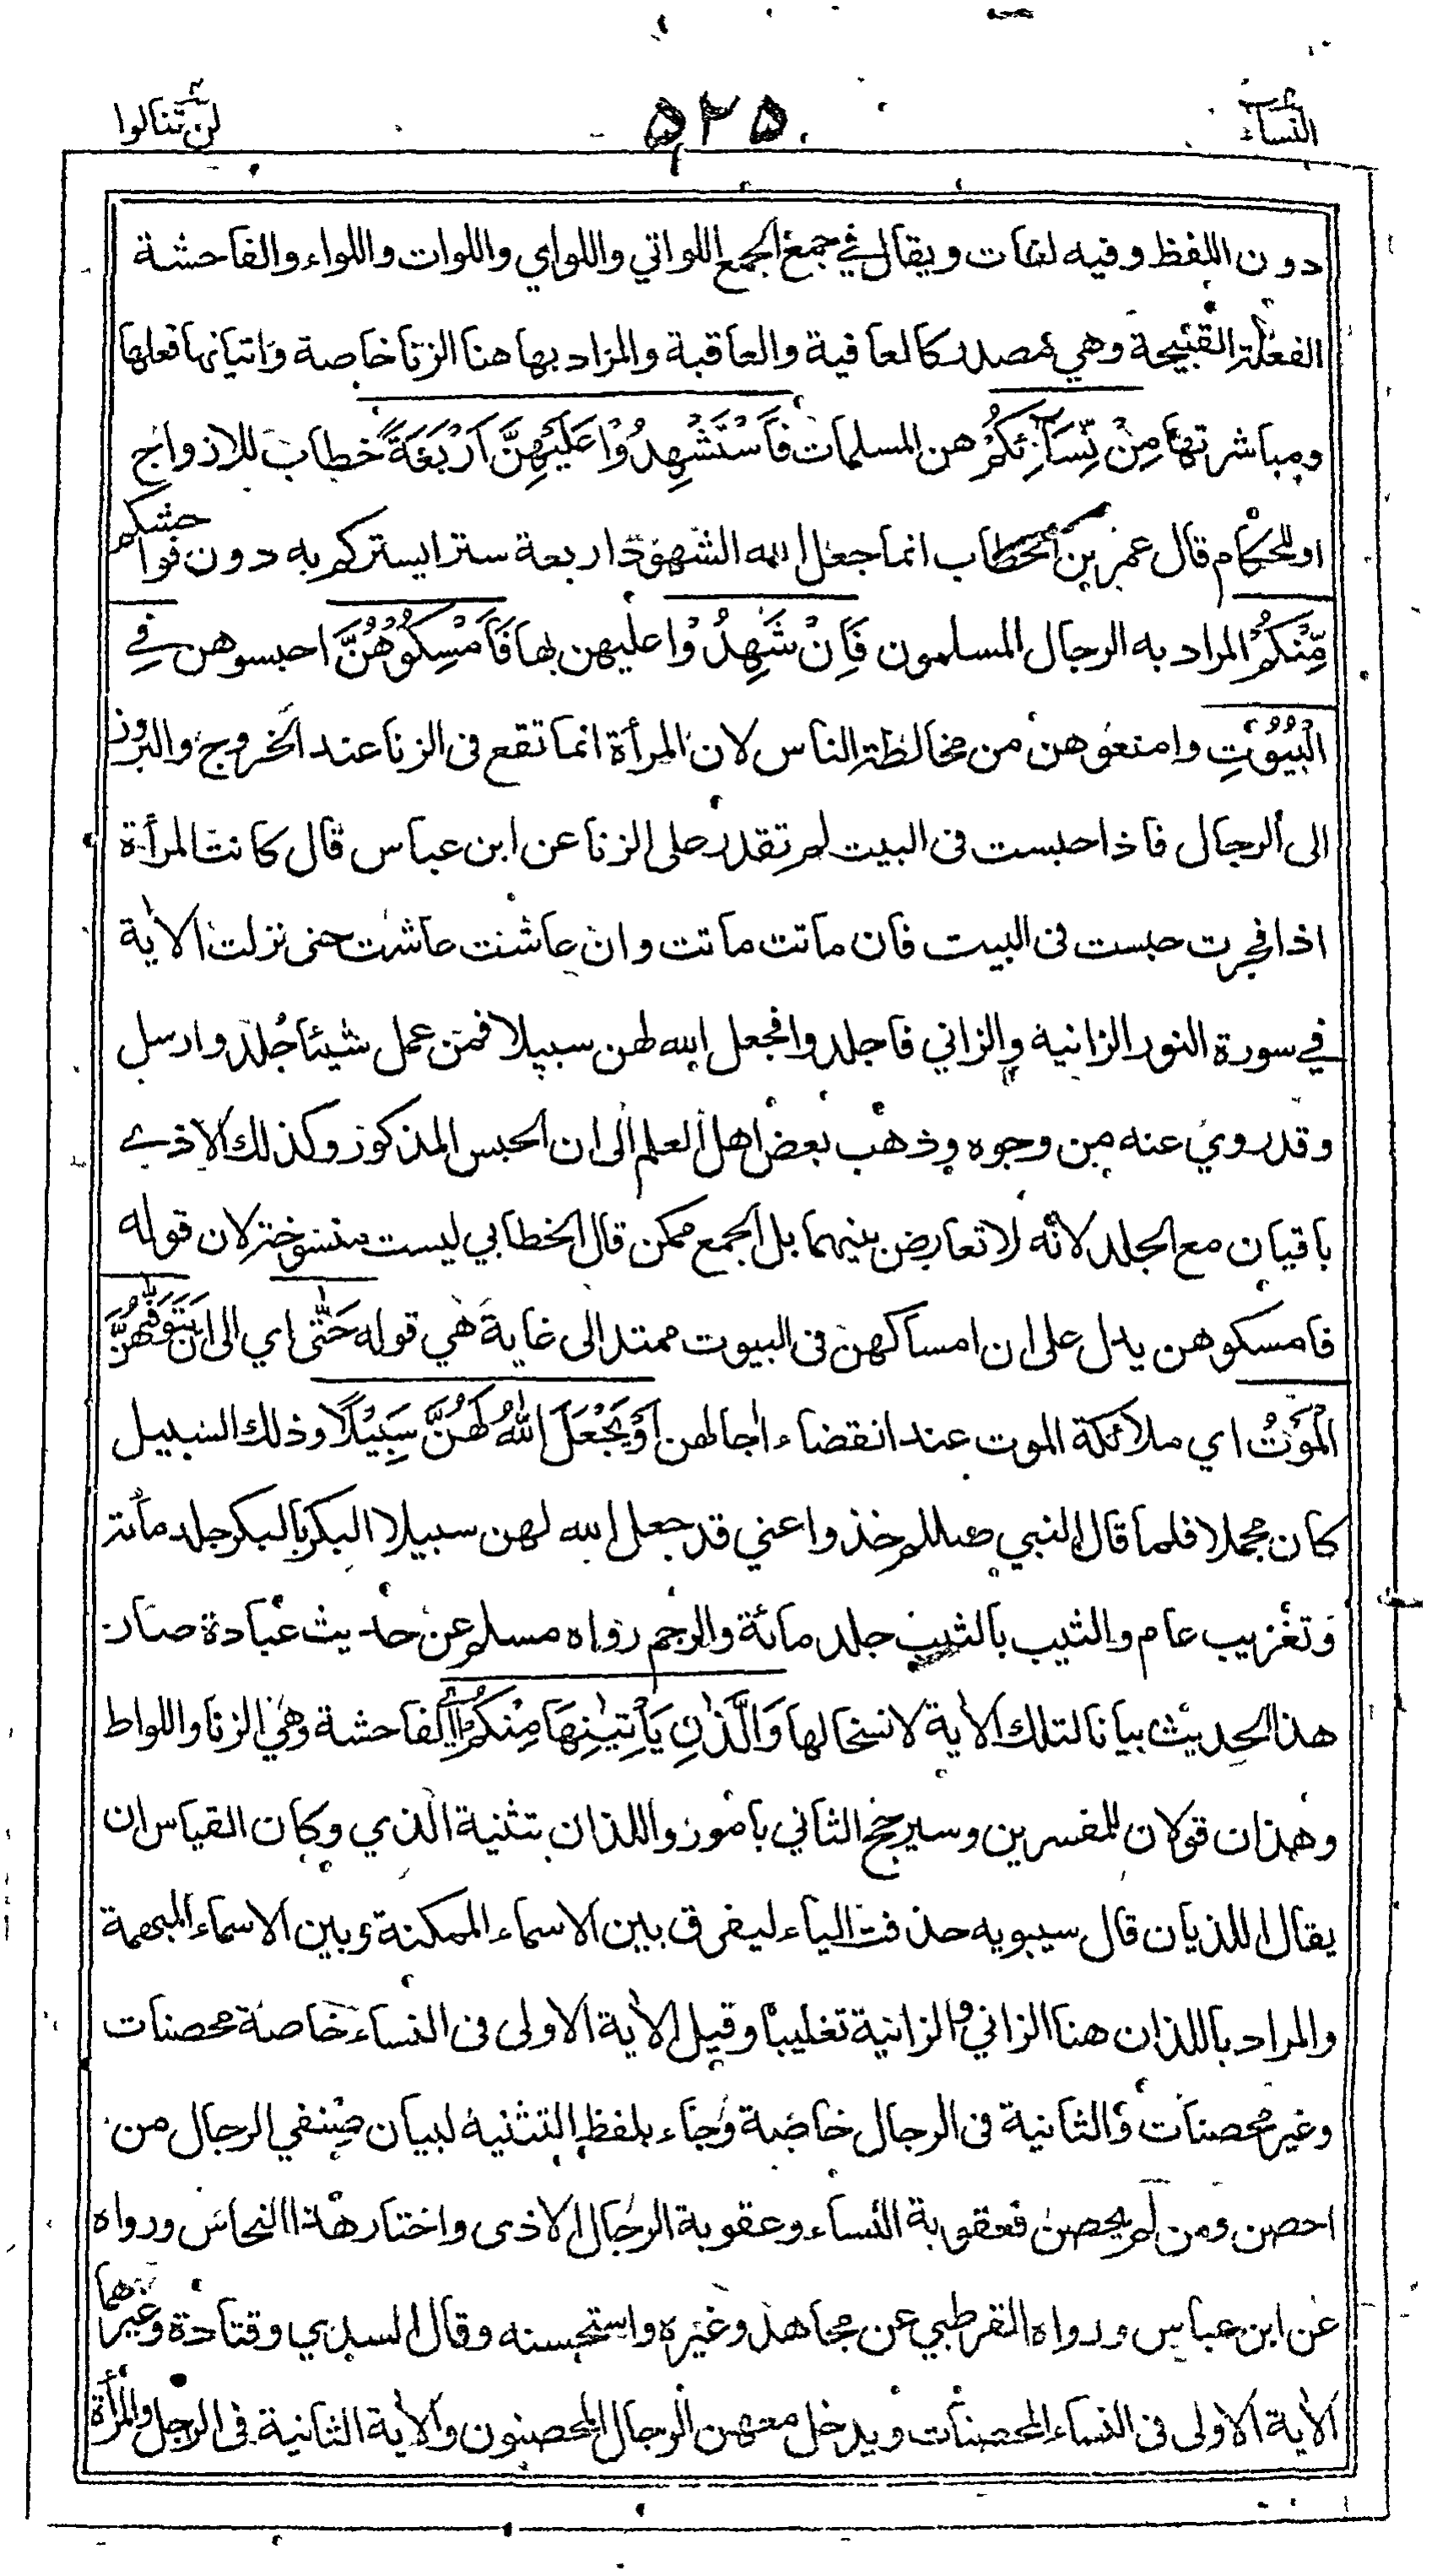 النساء
٥٢٥
لن تنالوا
دون اللفظ وفيه لغات ويقال في جمع الجمع اللواتي واللواي واللوات واللواء والفاحشة
الفعلة القبيحة وهي مصدر كالعافية والعاقبة والمراد بها هنا الزنا خاصة واتيانها فعلها
ومباشرتها مِنْ نِّسَآئِكُمْ هن المسلمات فَاسْتَشْهِدُوْا عَلَيْهِنَّ اَرْبَعَةً خطاب للازواج
او للحكام قال عمر بن الخطاب انما جعل الله الشهود اربعة سترا يستركم به دون فواحشكم
مِّنْكُمْ المراد به الرجال المسلمون فَاِنْ شَهِدُوْا عليهن بها فَاَمْسِكُوْهُنَّ احبسوهن فِي
الْبُيُوْتِ وامنعوهن من مخالطة الناس لان المرأة انما تقع فى الزنا عند الخروج والبروز
الى الرجال فاذا حبست فى البيت لم تقدر على الزنا عن ابن عباس قال كانت المرأة
اذا فجرت حبست فى البيت فان ماتت ماتت وان عاشت عاشت حتى نزلت الاٰية
في سورة النور الزانية والزاني فاجلدوا فجعل الله لهن سبيلا فمن عمل شيئا جُلد وارسل
وقد روي عنه من وجوه وذهب بعض اهل العلم الى ان الحبس المذكور وكذلك الاذى
باقيان مع الجلد لانه لا تعارض بينهما بل الجمع ممكن قال الخطابي ليست منسوخة لان قوله
فامسكوهن يدل على ان امساكهن فى البيوت ممتد الى غاية هي قوله حَتّٰى اي الى ان يَتَوَفّٰهُنَّ
الْمَوْتُ اي ملائكة الموت عند انقضاء اٰجالهن اَوْ يَجْعَلَ اللّٰهُ لَهُنَّ سَبِيْلًا وذلك السبيل
كان مجملا فلما قال النبي صللم خذوا عني قد جعل الله لهن سبيلا البكر بالبكر جلد مائة
وتغريب عام والثيب بالثيب جلد مائة والرجم رواه مسلم عن حديث عبادة صار
هذا الحديث بيانا لتلك الاٰية لا نسخا لها وَالَّذٰنِ يَأْتِيٰنِهَا مِنْكُمْ اي الفاحشة وهي الزنا واللواط
وهذان قولان للمفسرين وسيرجح الثاني بامور واللذان بتثنية الذي وكان القياس ان
يقال اللذيان قال سيبويه حذفت الياء ليفرق بين الاسماء الممكنة وبين الاسماء المبهمة
والمراد باللذان هنا الزاني والزانية تغليبا وقيل الاٰية الاولى فى النساء خاصة محصنات
وغير محصنات والثانية فى الرجال خاصة وجاء بلفظ التثنية لبيان صنفي الرجال من
احصن ومن لم يحصن فعقوبة النساء وعقوبة الرجال الاذى واختار هذا النحاس ورواه
عن ابن عباس ورواه القرطبي عن مجاهد وغيره واستحسنه وقال السدي وقتادة وغيرهما
الاٰية الاولى فى النساء المحصنات ويدخل معهن الرجال المحصنون والاٰية الثانية فى الرجل والمرأة